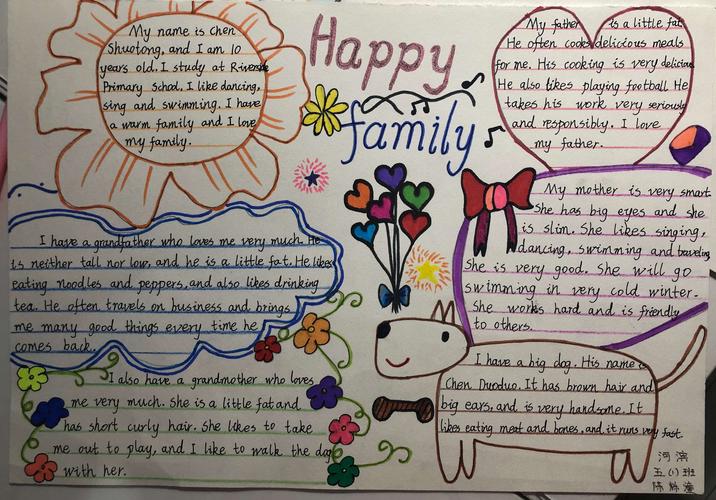 Happy
family
My name is Chen
Shuotong, and I am 10
years old. I study at Riverside
Primary School. I like dancing,
sing and swimming. I have
a warm family and I love
my family.
My father is a little fat.
He often cooks delicious meals
for me. His cooking is very delicious
He also likes playing football He
takes his work very seriously
and responsibly. I love
my father.
I have a grandfather who loves me very much. He
is neither tall nor low, and he is a little fat. He likes
eating noodles and peppers, and also likes drinking
tea. He often travels on business and brings
me many good things every time he
comes back.
My mother is very smart.
She has big eyes and she
is slim. She likes singing,
dancing, swimming and traveling
She is very good. She will go
swimming in very cold winter.
She works hard and is friendly
to others.
I also have a grandmother who loves
me very much. She is a little fat and
has short curly hair. She likes to take
me out to play, and I like to walk the dog
with her.
I have a big dog. His name is
Chen Duoduo. It has brown hair and
big ears, and is very handsome. It
likes eating meat and bones, and it runs very fast.
河滨
五(1)班
陈